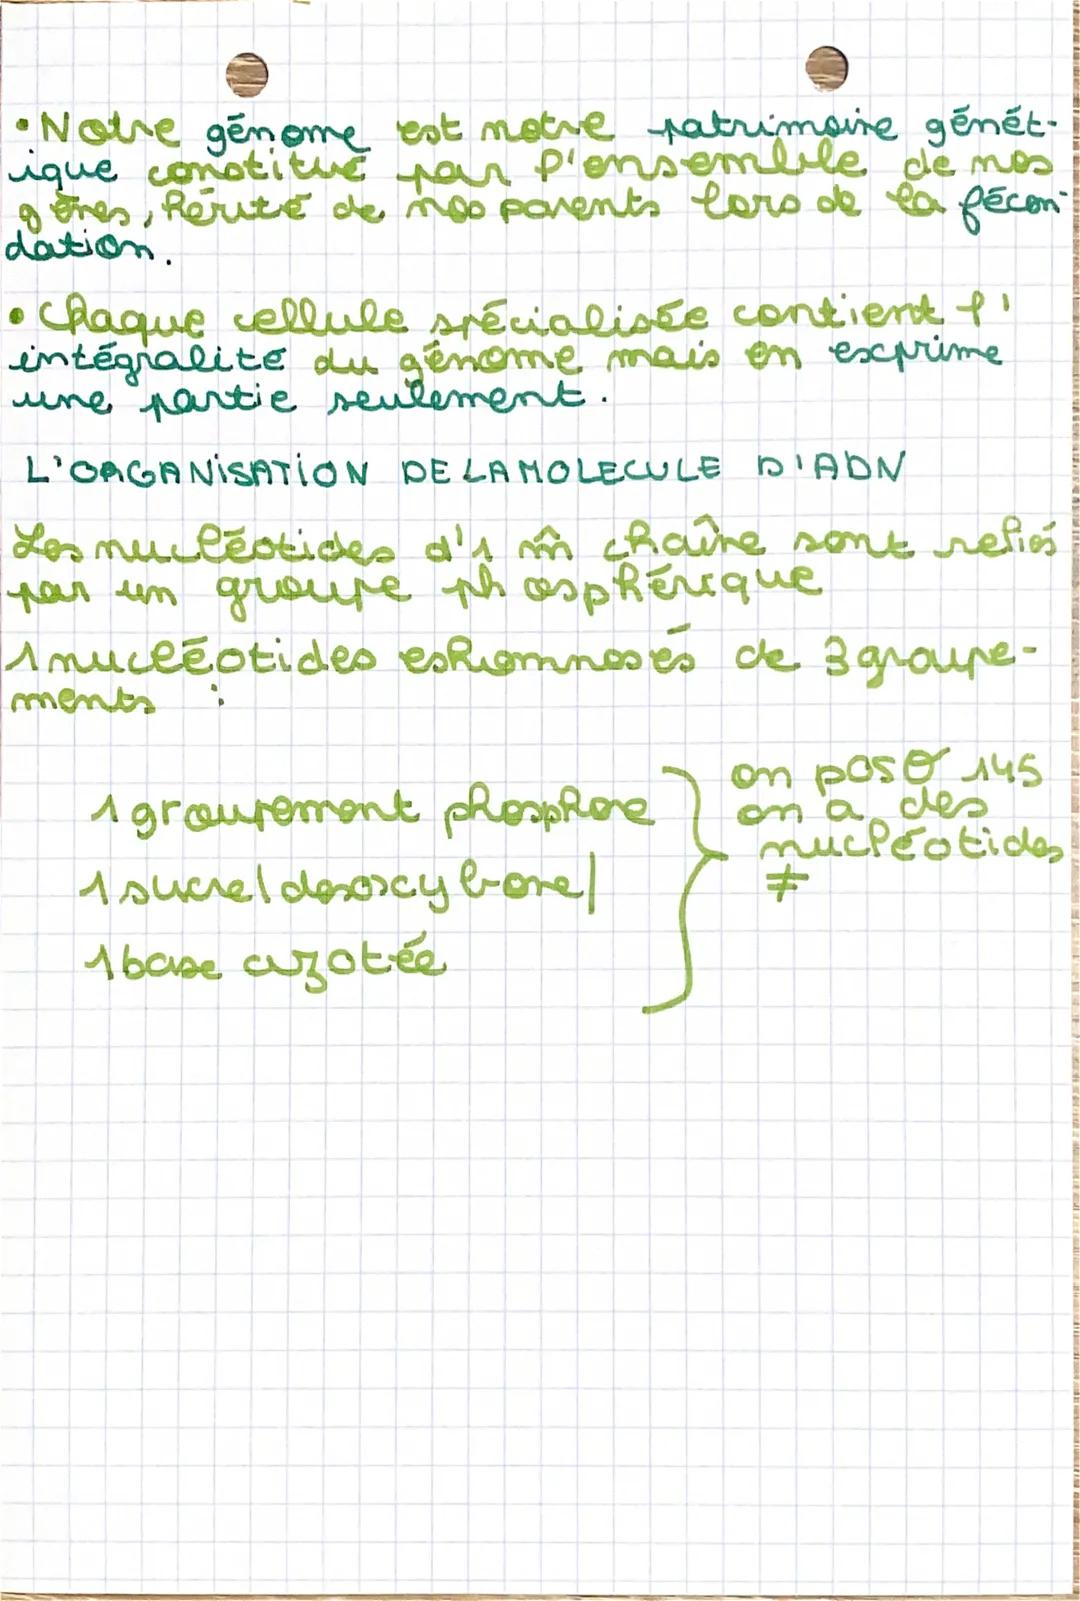 • Notre génome est notre patrimoine génét-
ique constitué par l'ensemble de nos
gènes, hérité de nos parents lors de la fécon-
dation.
• Chaque cellule spécialisée contient l'
intégralité du génome mais en exprime
une partie seulement.
L'ORGANISATION DE LA MOLECULE D'ADN
Les nucléotides d'1 m̂ chaîne sont reliés
par un groupe phosphérique
1 nucléotides est composés de 3 groupe-
ments :
1 groupement phosphore
on 145
on a des
nucléotides
≠
1 sucre (desoxybore)
1 base azotée